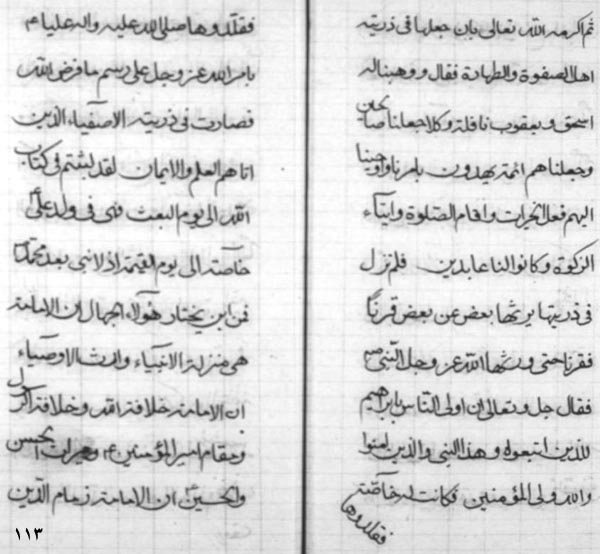 ثم اكرمه الله تعالى بان جعلها فى ذريته
اهل الصفوة والطهارة فقال ووهبنا له
اسحق ويعقوب نافلة وكلا جعلنا صالحين
وجعلناهم ائمة يهدون بامرنا واوحينا
اليهم فعل الخيرات واقام الصلوة وايتاء
الزكوة وكانوا لنا عابدين فلم تزل
فى ذريته يرثها بعض عن بعض قرنا
فقرنا حتى ورثها الله عز وجل النبى ص
فقال جل وتعالى ان اولى الناس بابرهيم
للذين اتبعوه وهذا النبى والذين امنوا
والله ولى المؤمنين فكانت له خاصة
فقلدوها
فقلدوها صلى الله عليه واله عليا ع
بامر الله عز وجل على رسم ما فرض الله
فصارت فى ذريته الاصفياء الذين
اتاهم العلم والايمان لقد لبثتم فى كتاب
الله الى يوم البعث فهى فى ولد على
خاصة الى يوم القيمة اذ لا نبى بعد محمد
فمن اين يختار هؤلاء الجهال ان الامامة
هى منزلة الانبياء وارث الاوصياء
ان الامامة خلافة الله وخلافة الرسول
ومقام امير المؤمنين ع وميراث الحسن
والحسين ان الامامة زمام الدين
١١٣